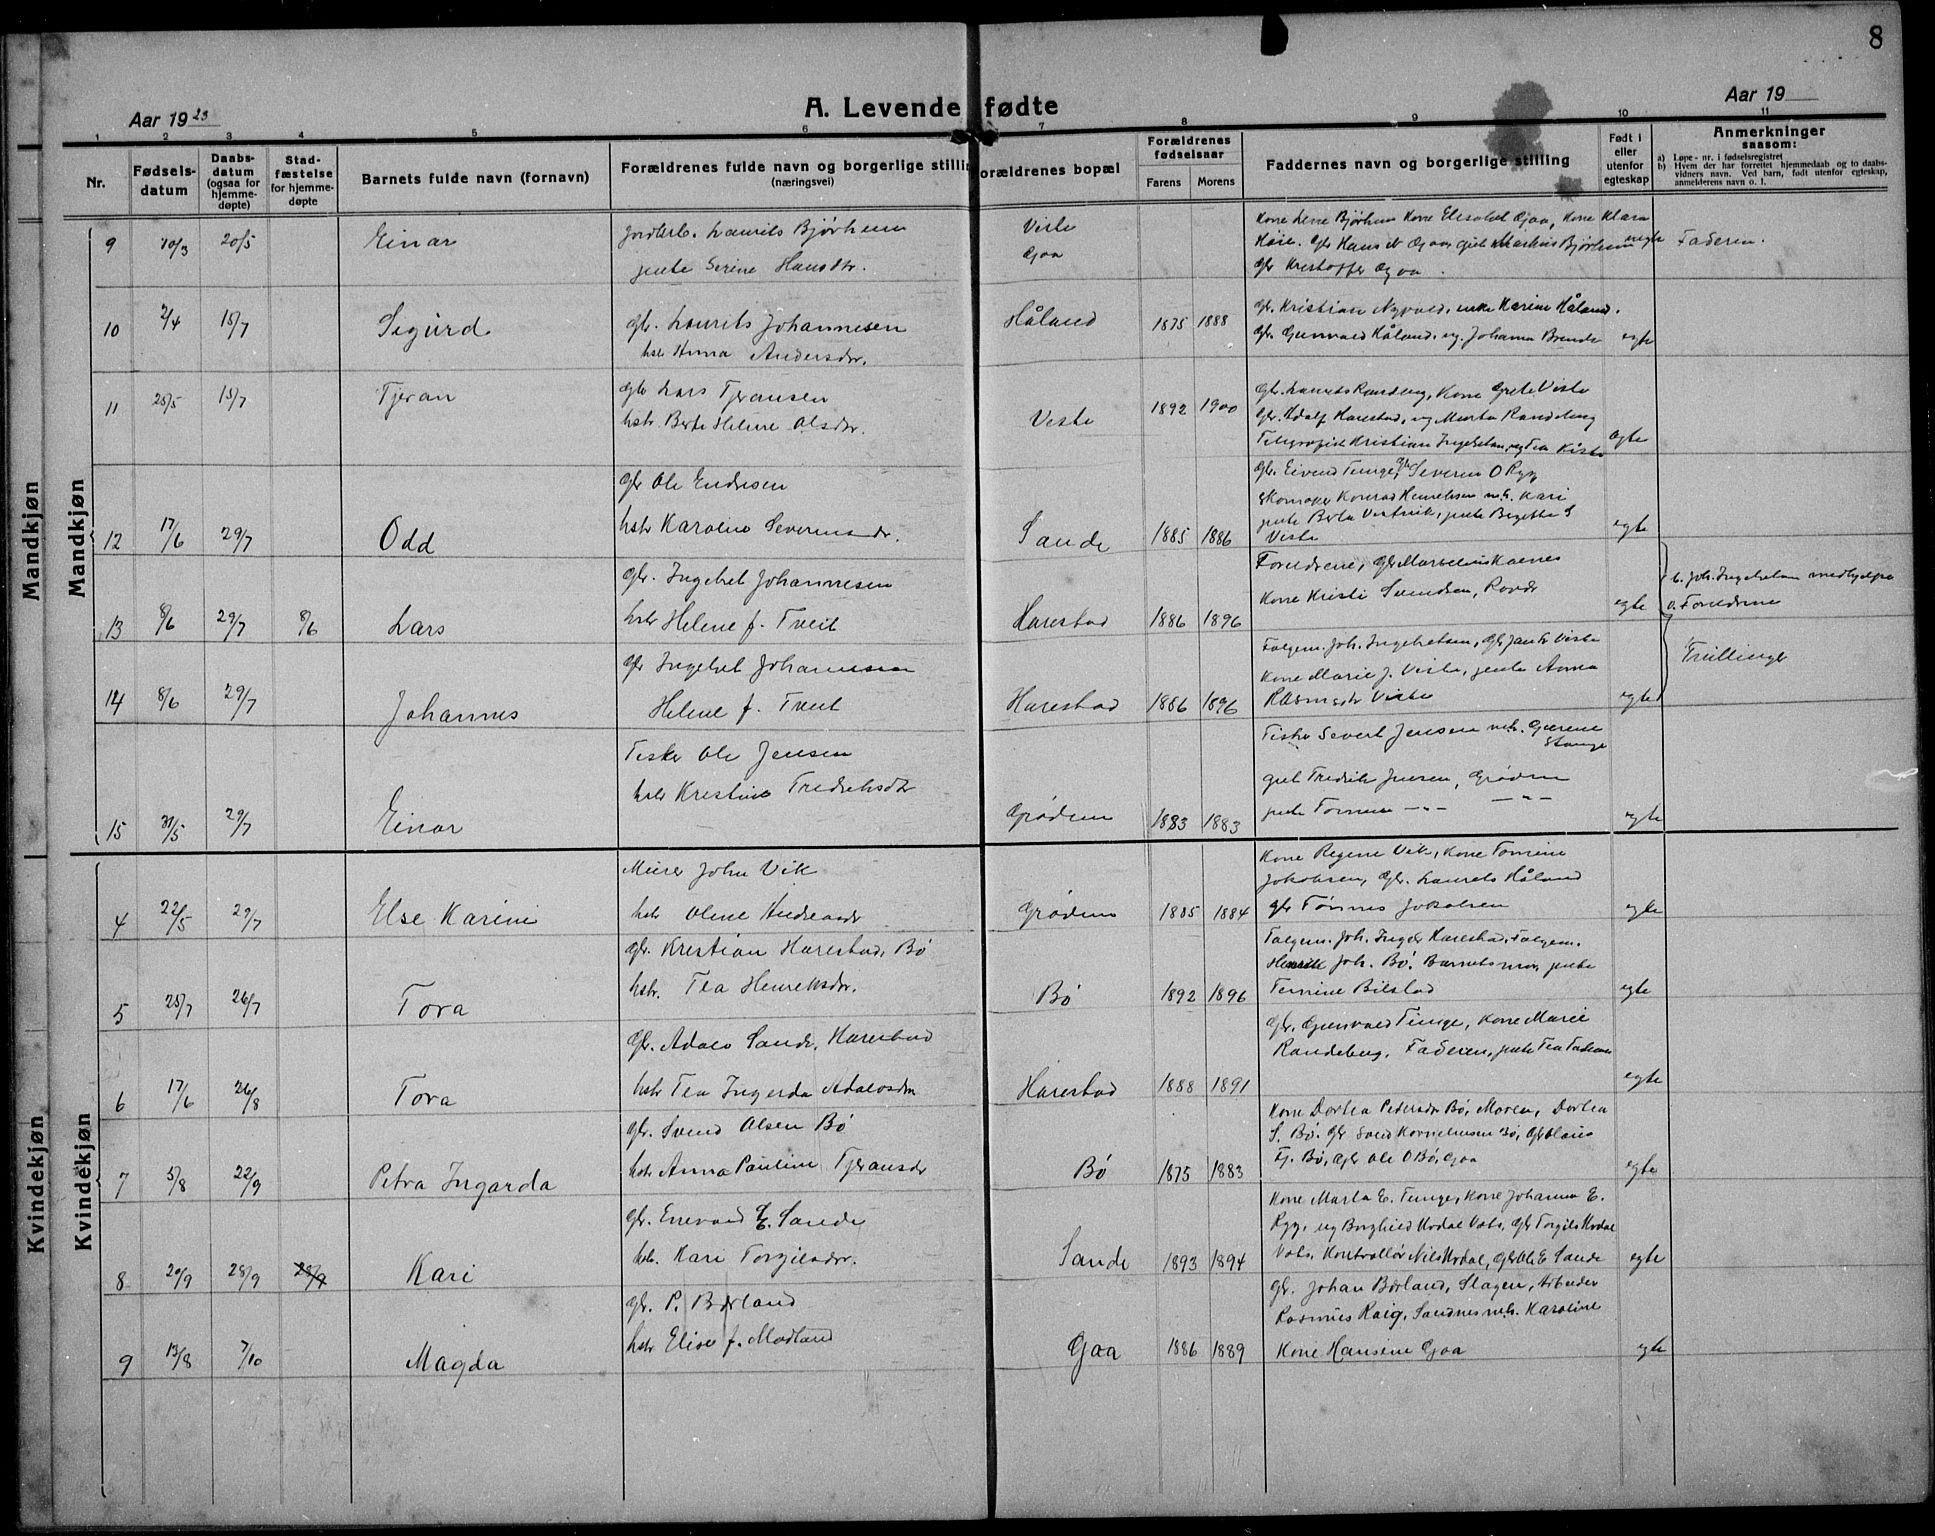 8
A. Levende fødte
Aar 1923
Aar 19
1 2 3 4 5 6 7 8 9 10 11
Nr.
Fødsels-
datum
Daabs-
datum
(ogsaa for
hjemme-
døpte)
Stad-
fæstelse
for hjemme-
døpte
Barnets fulde navn (fornavn)
Forældrenes fulde navn og borgerlige stillin
(næringsvei)
orældrenes bopæl
Forældrenes
fødselsaar
Farens Morens
Faddernes navn og borgerlige stilling
Født i
eller
utenfor
egteskap
Anmerkninger
saasom:
a) Løpe-nr. i fødselsregistret
b) Hvem der har forrettet hjemmedaab og to daabs-
vidners navn. Ved barn, født utenfor egteskap,
anmelderens navn o. l.
Mandkjøn
Mandkjøn
9 10/3 20/5 Einar
Laurits Bjørheim
pike Serine Hansdtr.
Viste
Gaa
Kone Lene Bjørheim Kone Elisabet Gaa, Kone Klara
Høie. Gbr Hans Gaa, gut Markus Bjørheim uegte
Gbr Kristoffer Gaa.
Faderen.
10 2/4 15/7 Sigurd
gbr. Laurits Johannesen
hstr Anna Andersdtr.
Håland 1875 1888
gbr. Kristian Nyvold, enke Karine Håland.
Gbr. Gunvald Håland, ug. Johanna Brende egte
11 25/5 15/7 Tjeran
gbr Lars Tjeransen
hstr. Berte Helene Olsdtr.
Viste 1892 1900
Gbr. Laurits Randeberg, Kone Grete Viste
Gbr. Adolf Harestad, ug Marta Randeberg
Telegrafist Kristian Ingebretsen, ug Tea Viste egte
12 17/6 29/7 Odd
gbr Ole Endresen
hstr Karoline Severinsdtr.
Sande 1885 1886
gbr. Eivind Tunge, gbr Severin O Ryg
Skomaker Konrad Henriksen m.h. Kari
pike Berta Vestvik, pike Birgitte S
Viste
egte
13 8/6 29/7 8/6 Lars
gbr. Ingebret Johannesen
hstr Helene f. Tveit
Harestad 1886 1896
Forældrene, gbr Marselius Kaenes
Kone Kristi Svendsen, Rovær
egte
b. Joh. Ingebretsen medhjelper
o. Forældrene
14 8/6 29/7 Johannes
gbr Ingebret Johannesen
Helene f. Tveit
Harestad 1886 1896
Folgem. Joh. Ingebretsen, Gbr Jan Viste
Kone Marie J. Viste, pike Anna
Rasmsdtr Viste
egte
Tvillinger
15 31/5 29/7 Einar
Fisker Ole Jensen
hstr Kristine Fredriksdtr
Grødem 1883 1883
Fisker Sivert Jensen m.h. Gurene
Stange
gut Fredrik Jensen, Grødem
pike Tomine -"- -"-
egte
Kvindekjøn
Kvindekjøn
4 22/5 29/7 Else Karine
Murer John Vik
hstr Oline Andreasdtr
Grødem 1885 1884
Kone Regine Vik, Kone Tomine
Jakobsen, Gbr. Laurits Håland
gbr Tønnes Jakobsen
egte
5 25/7 26/7 Tora
gbr. Kristian Harestad, Bø
hstr. Tea Henriksdtr.
Bø 1892 1896
Folgem. Joh. Ingebr Harestad, Folgem.
Henrik Joh. Bø. Barnets mor, pike
Temine Bilstad
egte
6 17/6 26/8 Tora
gbr. Adalo Sande, Harestad
hstr Tea Ingerda Adalosdtr
Harestad 1888 1891
gbr. Gunvald Tunge, Kone Marie
Randeberg, Faderen, pike Tea
egte
7 5/8 22/9 Petra Ingarda
gbr. Svend Olsen Bø
hstr Anna Pauline Tjeransdtr
Bø 1875 1883
Kone Dortea Pedersdtr Bø, Moren, Dortea
S. Bø. gbr Svend Korneliussen Bø, gbr Claus
Tj. Bø, gbr Ole O Bø, Gaa
egte
8 20/9 28/9 28/9 Kari
gbr. Enevald E. Sande
hstr. Kari Torgilsdtr.
Sande 1893 1894
Kone Marta E. Tunge, Kone Johanna E.
Ryg, ug Borghild Hodal Vats, gbr Torgils Hodal
Vats, Kontrollør Nils Hodal, gbr Ole E Sande egte
9 13/8 7/10 Magda
gbr. P. Børland
hstr Elise f. Modland
Gaa 1886 1889
gbr. Johan Børland, Stagen, Arbeider
Rasmus Raig, Sandnes m.h. Karoline
Kone Hansine Gaa
egte